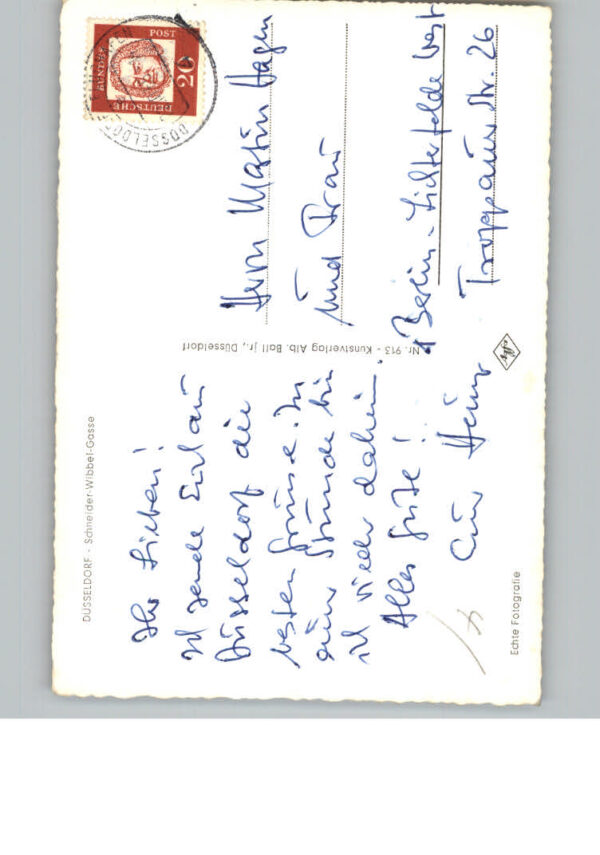 DÜSSELDORF - Schneider-Wibbel-Gasse
Ihr Lieben!
Ich sende Euch aus
Düsseldorf die
besten Grüsse. In
einer Stunde bin
ich wieder daheim.
Alles Gute!
Euer Heinz
Echte Fotografie
Nr. 913 - Kunstverlag Alb. Ball jr., Düsseldorf
DEUTSCHE
BUNDES
POST
20
DÜSSELDORF
Herrn Martin Hagen
und Frau
Berlin-Lichterfelde West
Troppauer Str. 26
Agfa